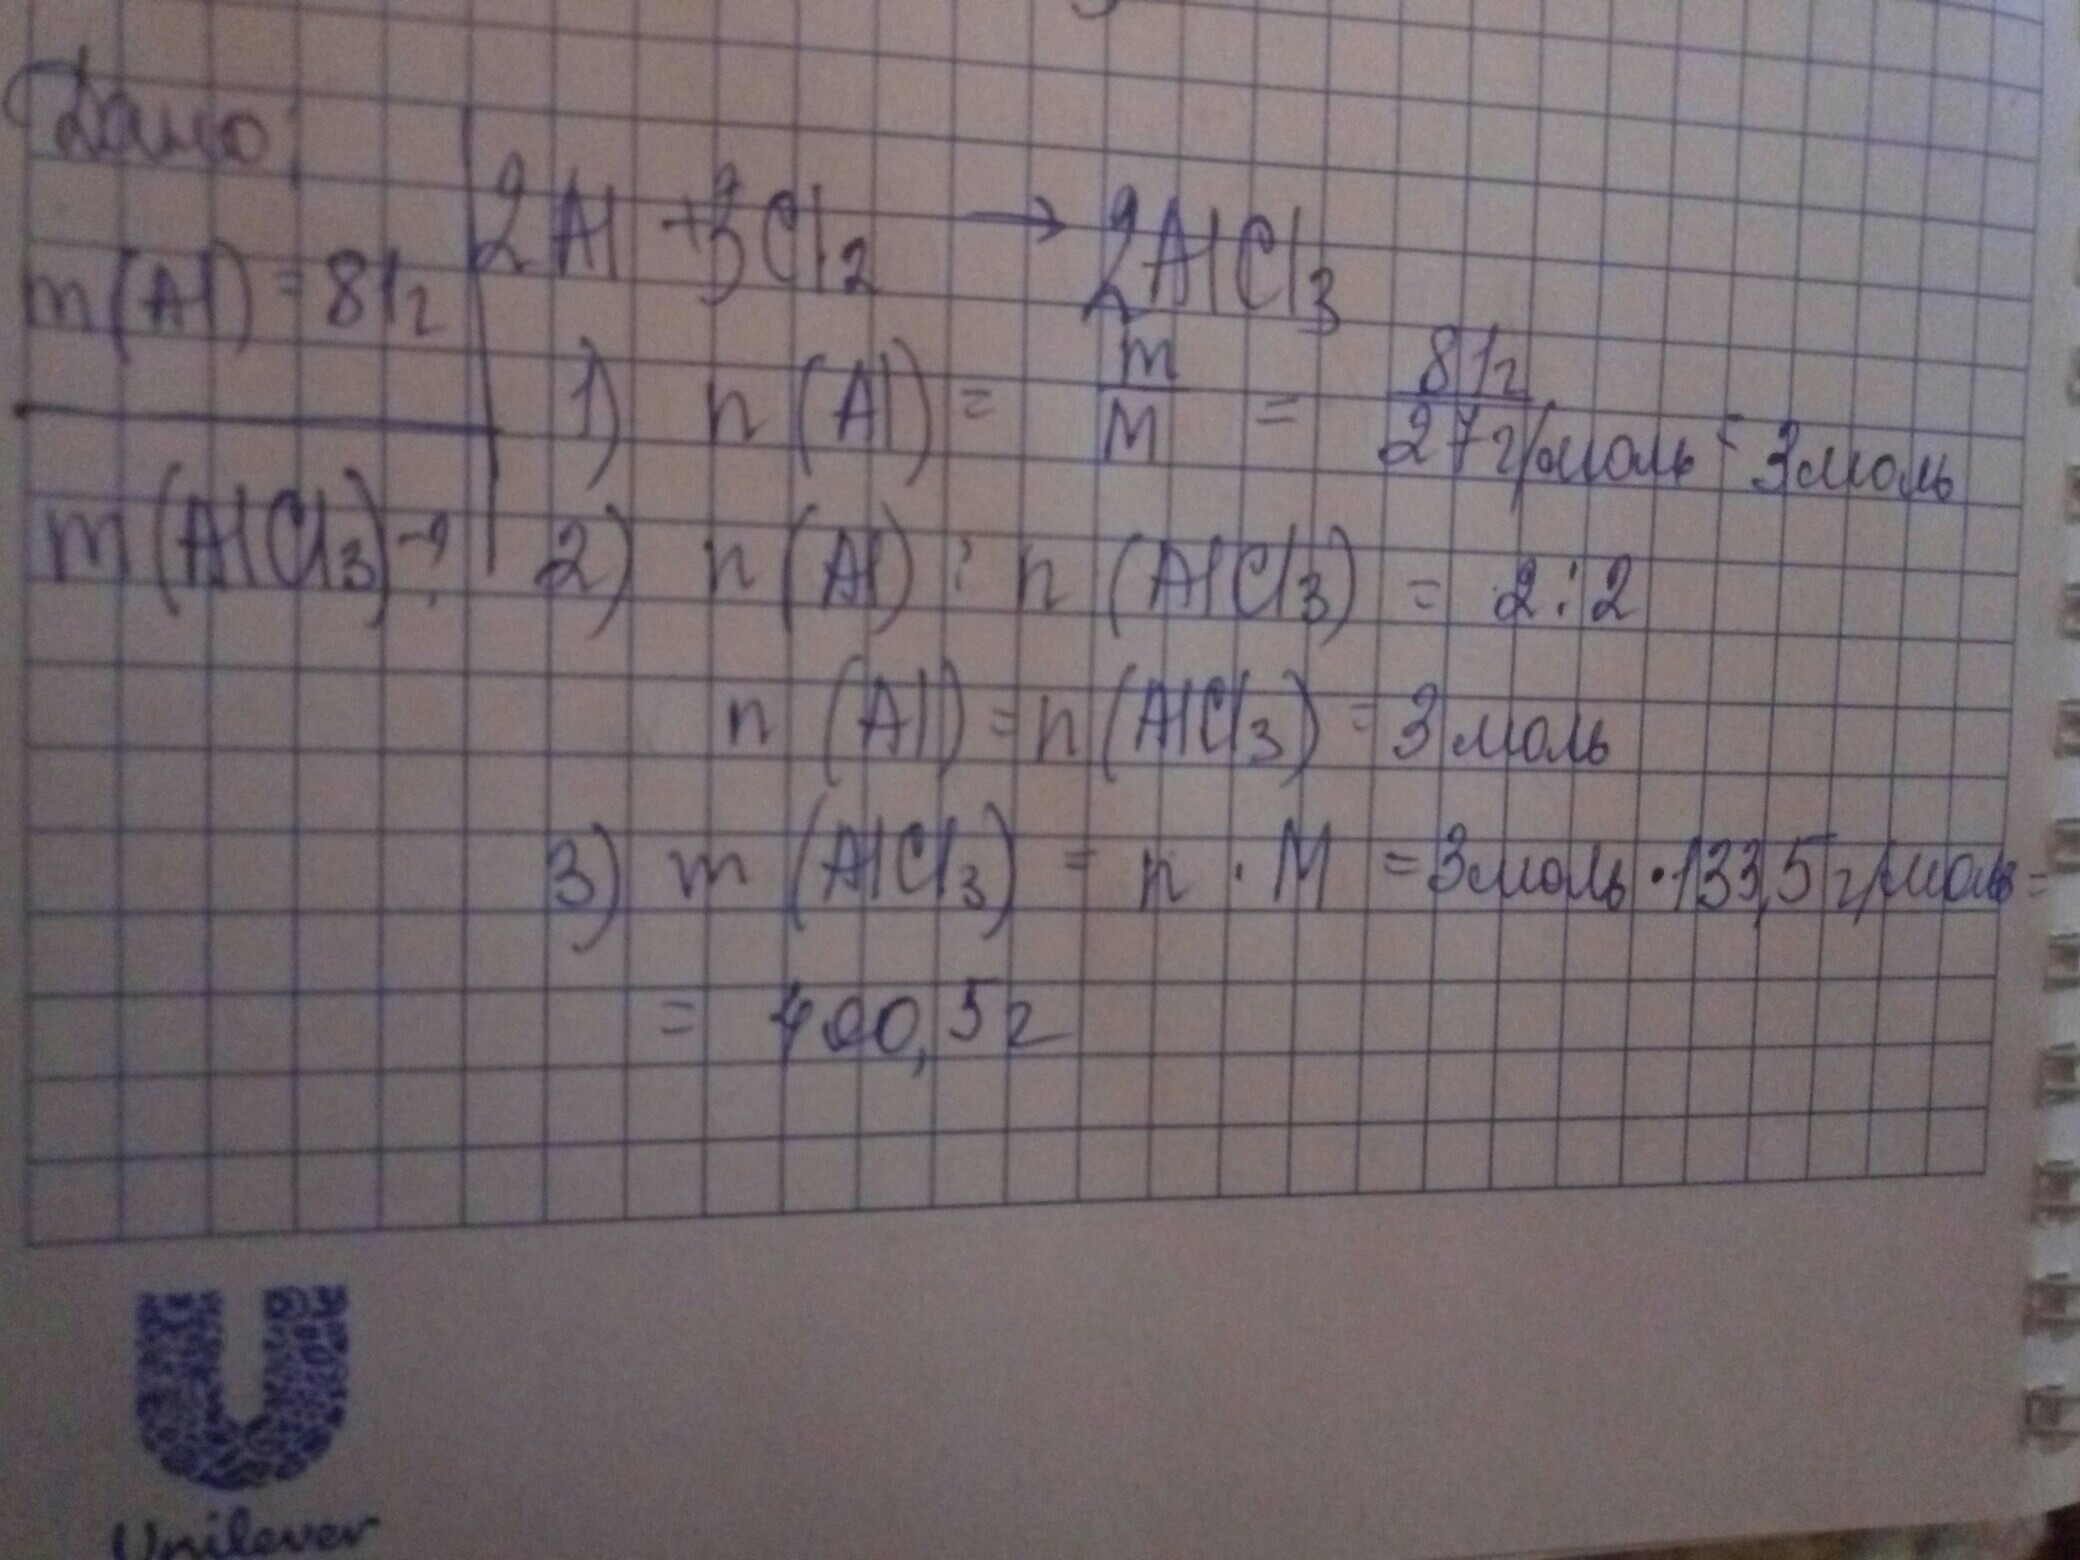 Дано:
m(Al) = 81г
m(AlCl3) - ?
2Al + 3Cl2 → 2AlCl3
1) n(Al) = m/M = 81г/27г/моль = 3моль
2) n(Al) : n(AlCl3) = 2:2
n(Al) = n(AlCl3) = 3моль
3) m(AlCl3) = n · M = 3моль · 133,5г/моль =
= 400,5г
Unilever